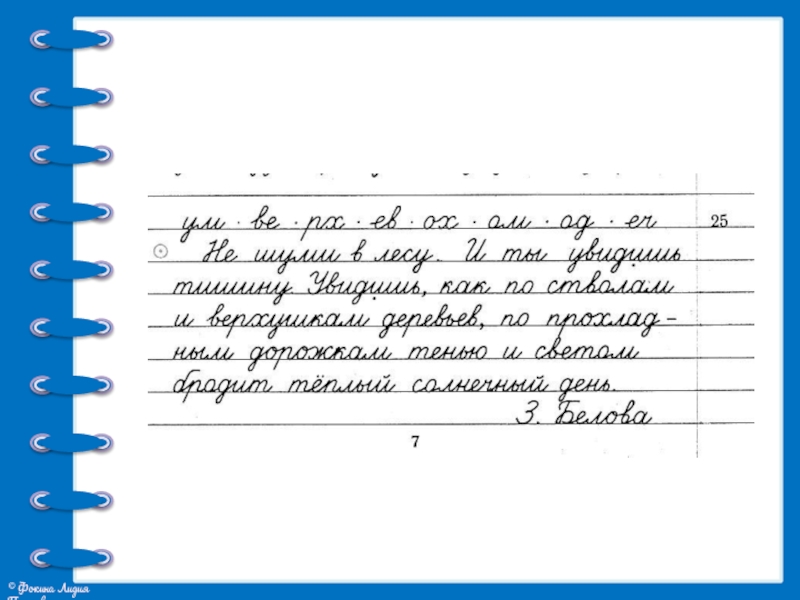 ум · ве · рх · ев · ох · ом · од · еч 25
Не шуми в лесу. И ты увидишь
тишину. Увидишь, как по стволам
и верхушкам деревьев, по прохлад-
ным дорожкам тенью и светом
бродит тёплый солнечный день.
З. Белова
7
© Фокина Лидия